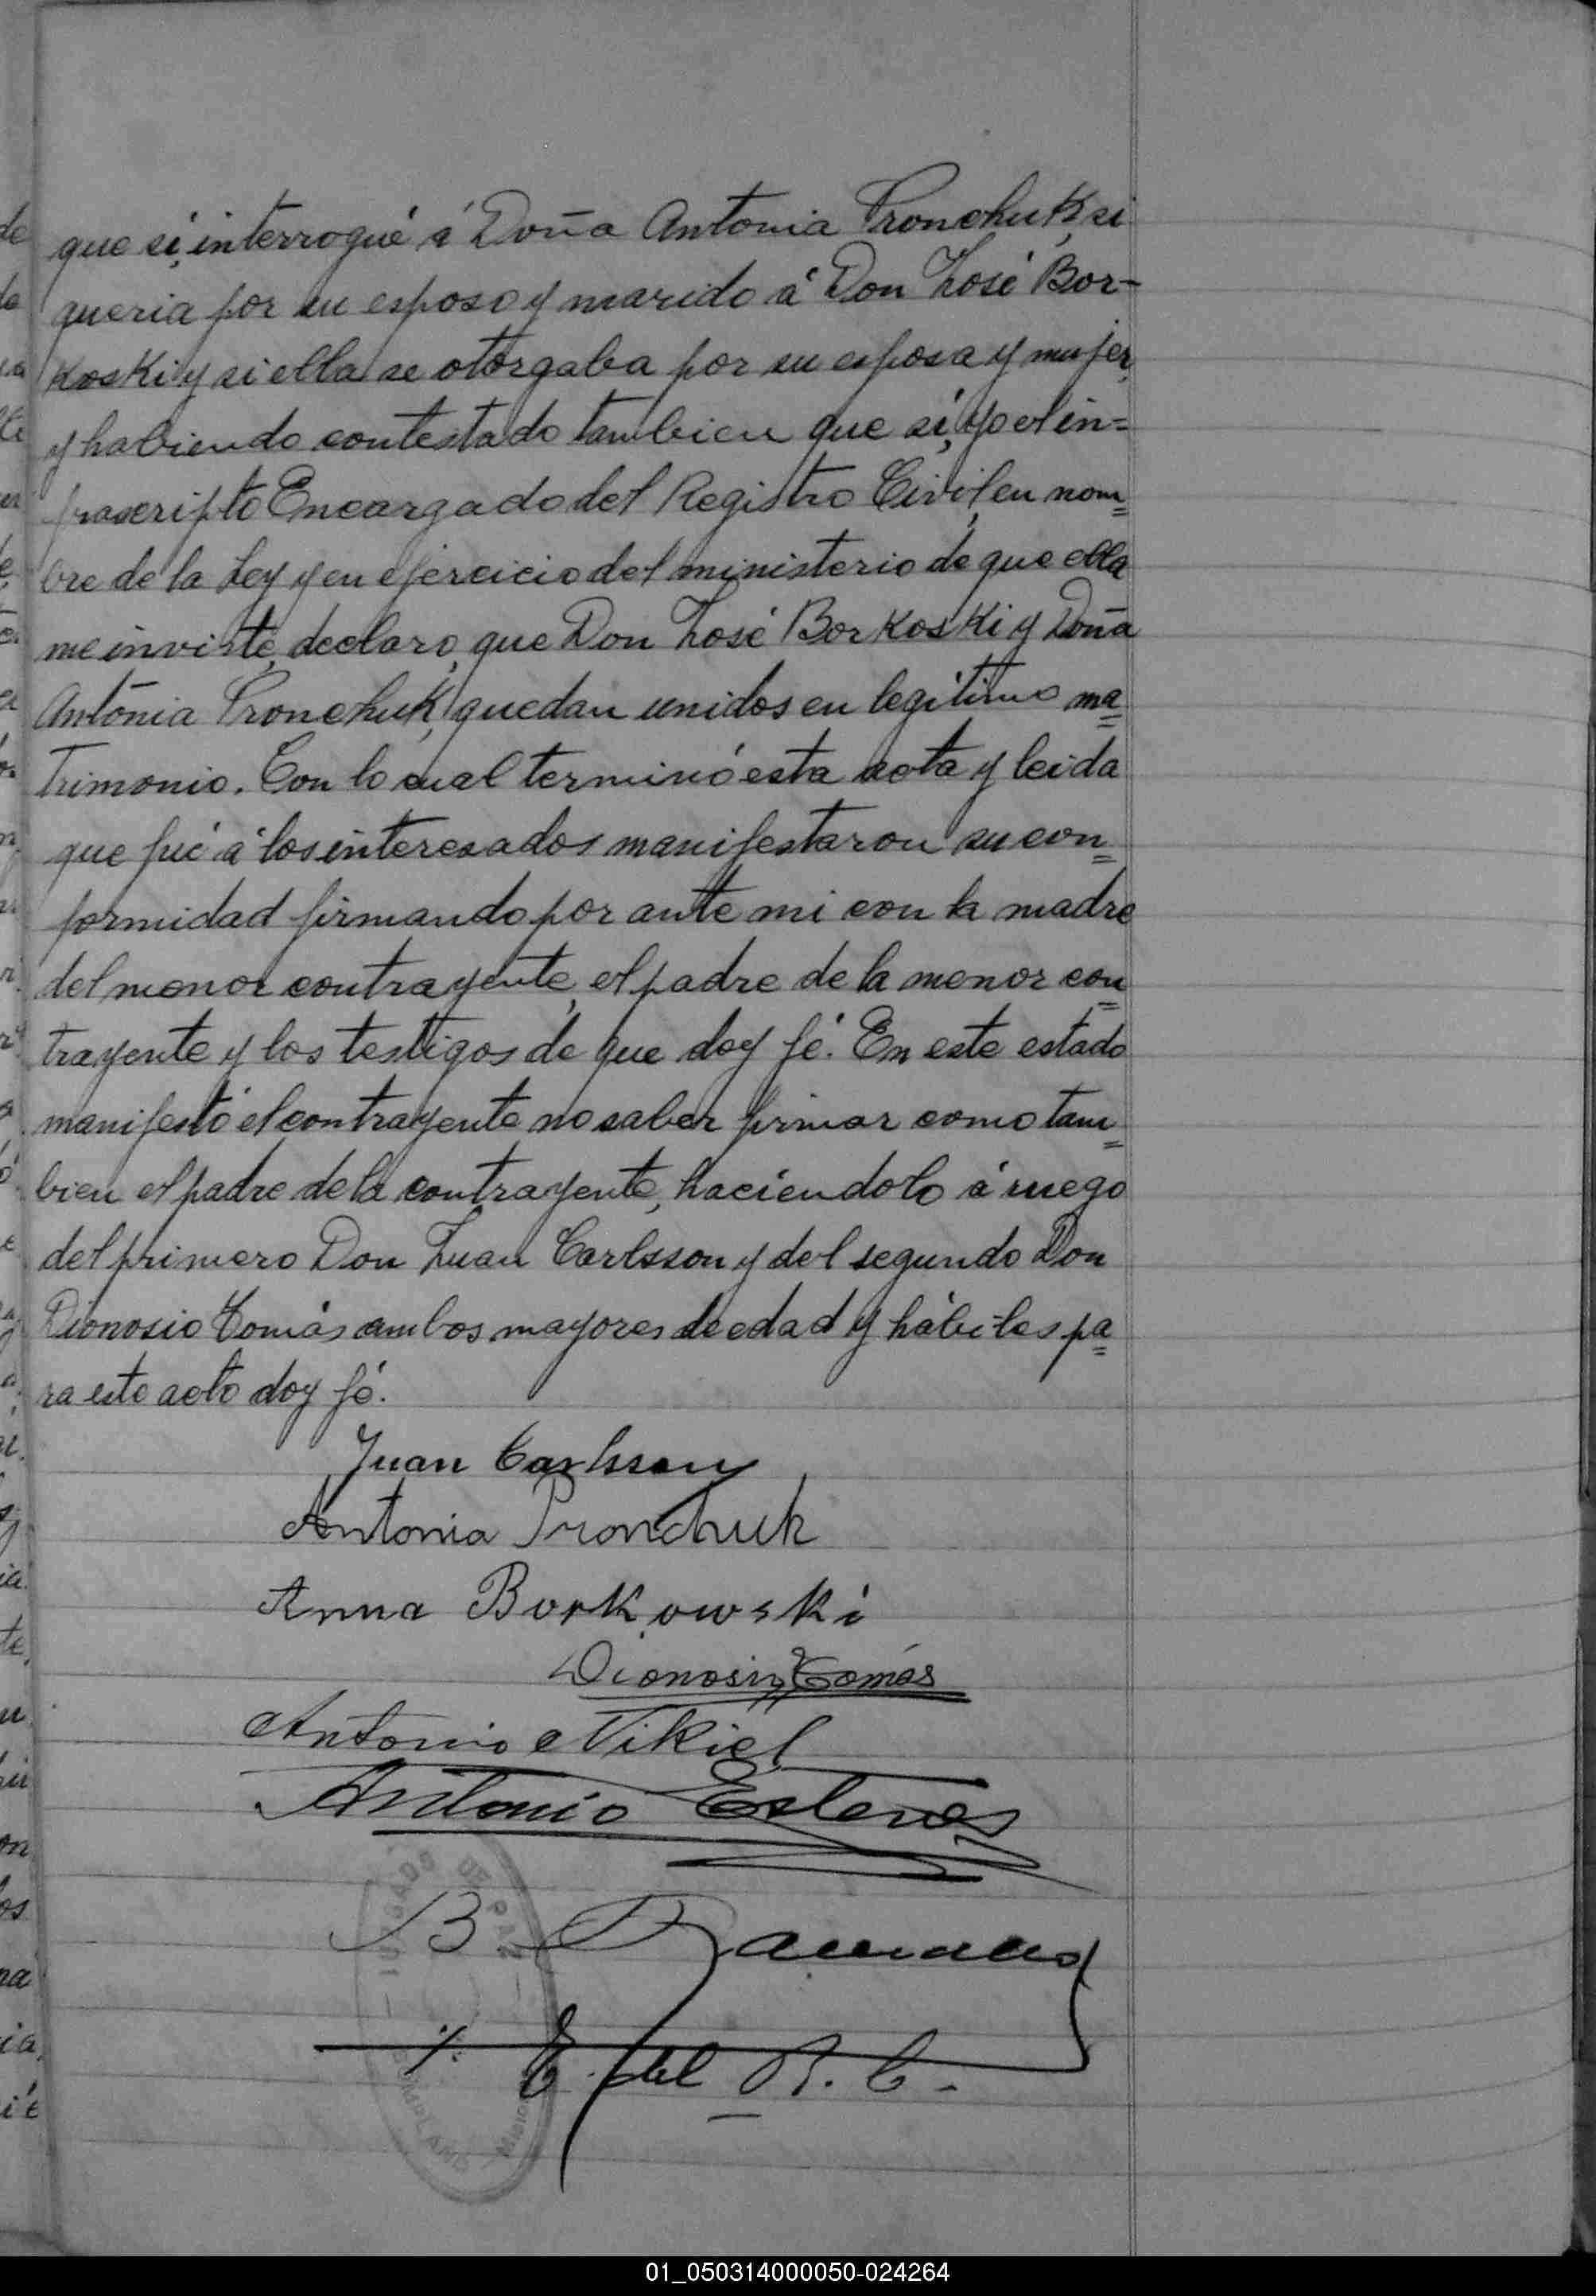 que sí, interrogué á Doña Antonia Pronchuk, si
queria por su esposo y marido á Don José Bor-
Koski y si ella se otorgaba por su esposa y mujer,
y habiendo contestado tambien que sí, yo el in=
frascripto Encargado del Registro Civil, en nom=
bre de la Ley y en ejercicio del ministerio de que ella
me inviste, declaro, que Don José BorKosKi y Doña
Antonia Pronchuk, quedan unidos en legítimo ma=
trimonio. Con lo cual terminó esta acta y leida
que fué á los interesados manifestaron su con=
formidad firmando por ante mi con la madre
del menor contrayente, el padre de la menor con=
trayente y los testigos de que doy fé. En este estado
manifestó el contrayente no saber firmar como tam=
bien el padre de la contrayente, haciendolo á ruego
del primero Don Juan Carlsson y del segundo Don
Dionosio Tomás ambos mayores de edad y hábiles pa=
ra este acto doy fé.
Juan Carlsson
Antonia Pronchuk
Anna Borkowski
Dionosio Tomás
Antonio Nikiel
Antonio Esteves
B.
E. del R. C.
01_050314000050-024264